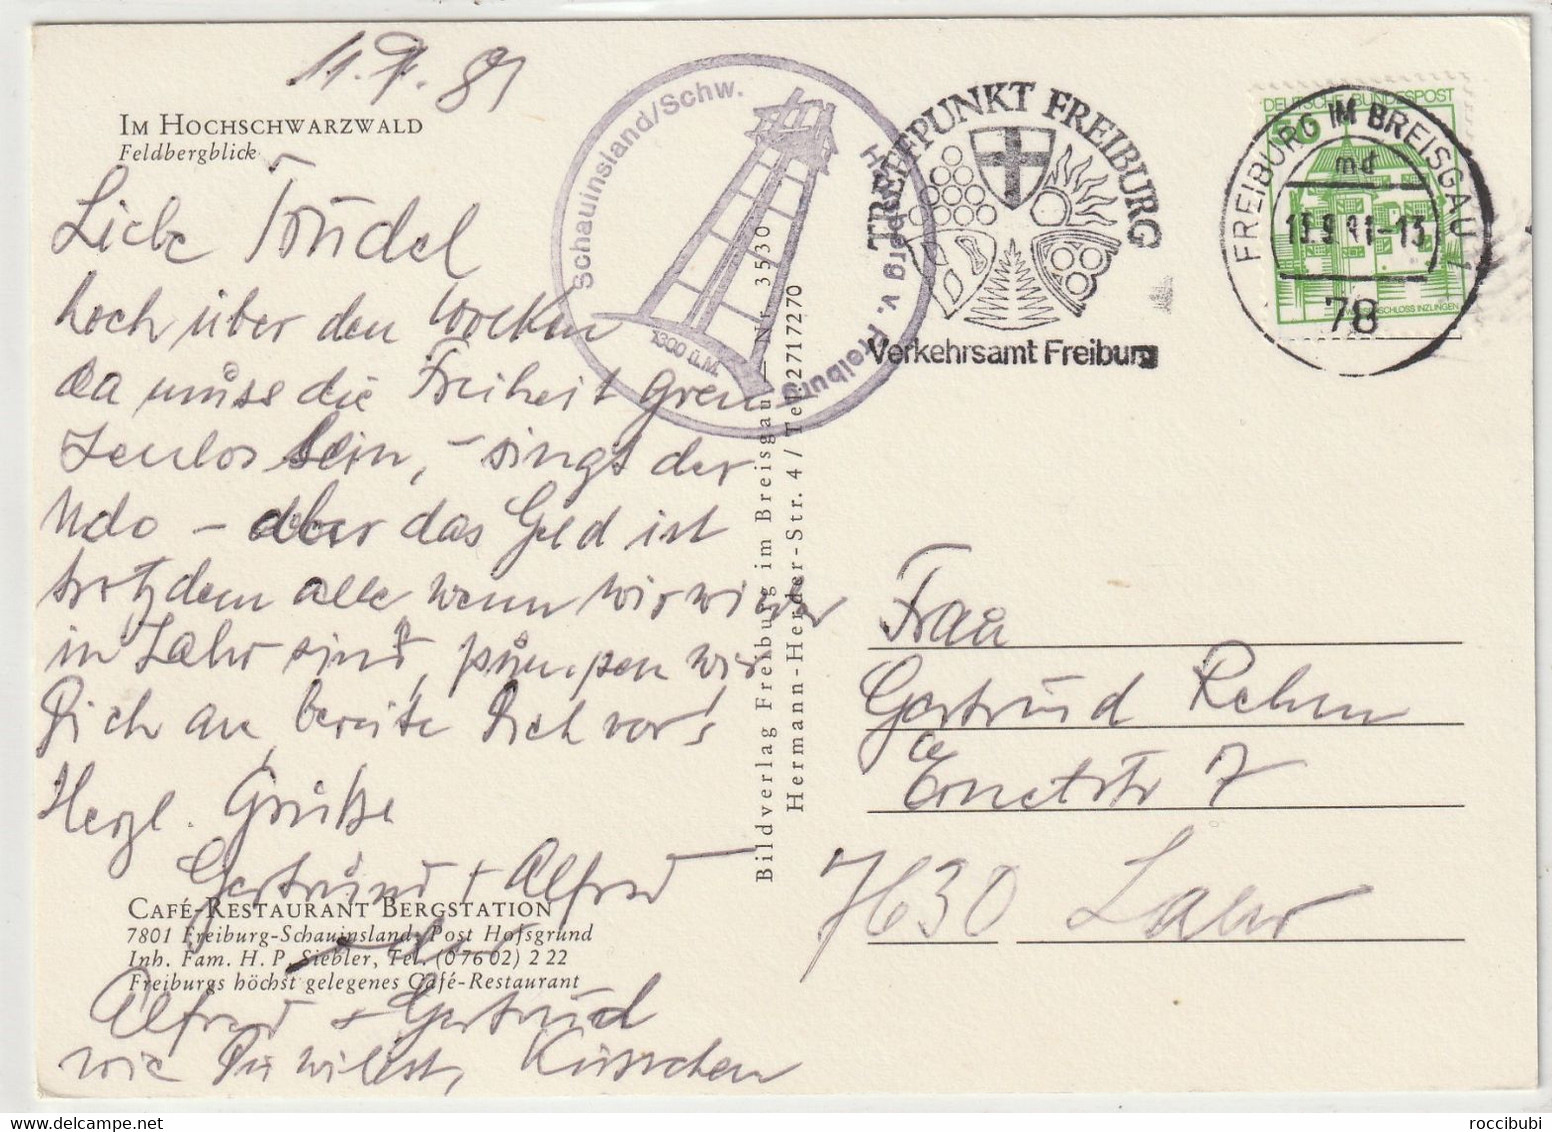 11.9.81
IM HOCHSCHWARZWALD
Feldbergblick
Liebe Trudel
hoch über den Wolken
da muss die Freiheit Gren
zenlos sein, - singt der
Udo - aber das Geld ist
trotzdem alle wenn wir wieder
in Lahr sind, pumpen wir
Dich an, bereite Dich vor!
Herzl. Grüße
Gertrud + Alfred
oder
CAFÉ-RESTAURANT BERGSTATION
7801 Freiburg-Schauinsland, Post Hofsgrund
Inh. Fam. H. P. Siebler, Tel. (0 76 02) 2 22
Freiburgs höchst gelegenes Café-Restaurant
Alfred + Gertrud
wie Du willst, Küsschen
Schauinsland/Schw.
Hausberg v. Freiburg
1300 ü.M.
Bildverlag Freiburg im Breisgau — Nr. 3530
Hermann-Herder-Str. 4 / Tel. 2717270
TREFFPUNKT FREIBURG
Verkehrsamt Freiburg
DEUTSCHE BUNDESPOST
WASSERSCHLOSS INZLINGEN
FREIBURG IM BREISGAU 1
md
11.9.81-13
78
Frau
Gertrud
Ernetstr 7
7630 Lahr
roccibubi